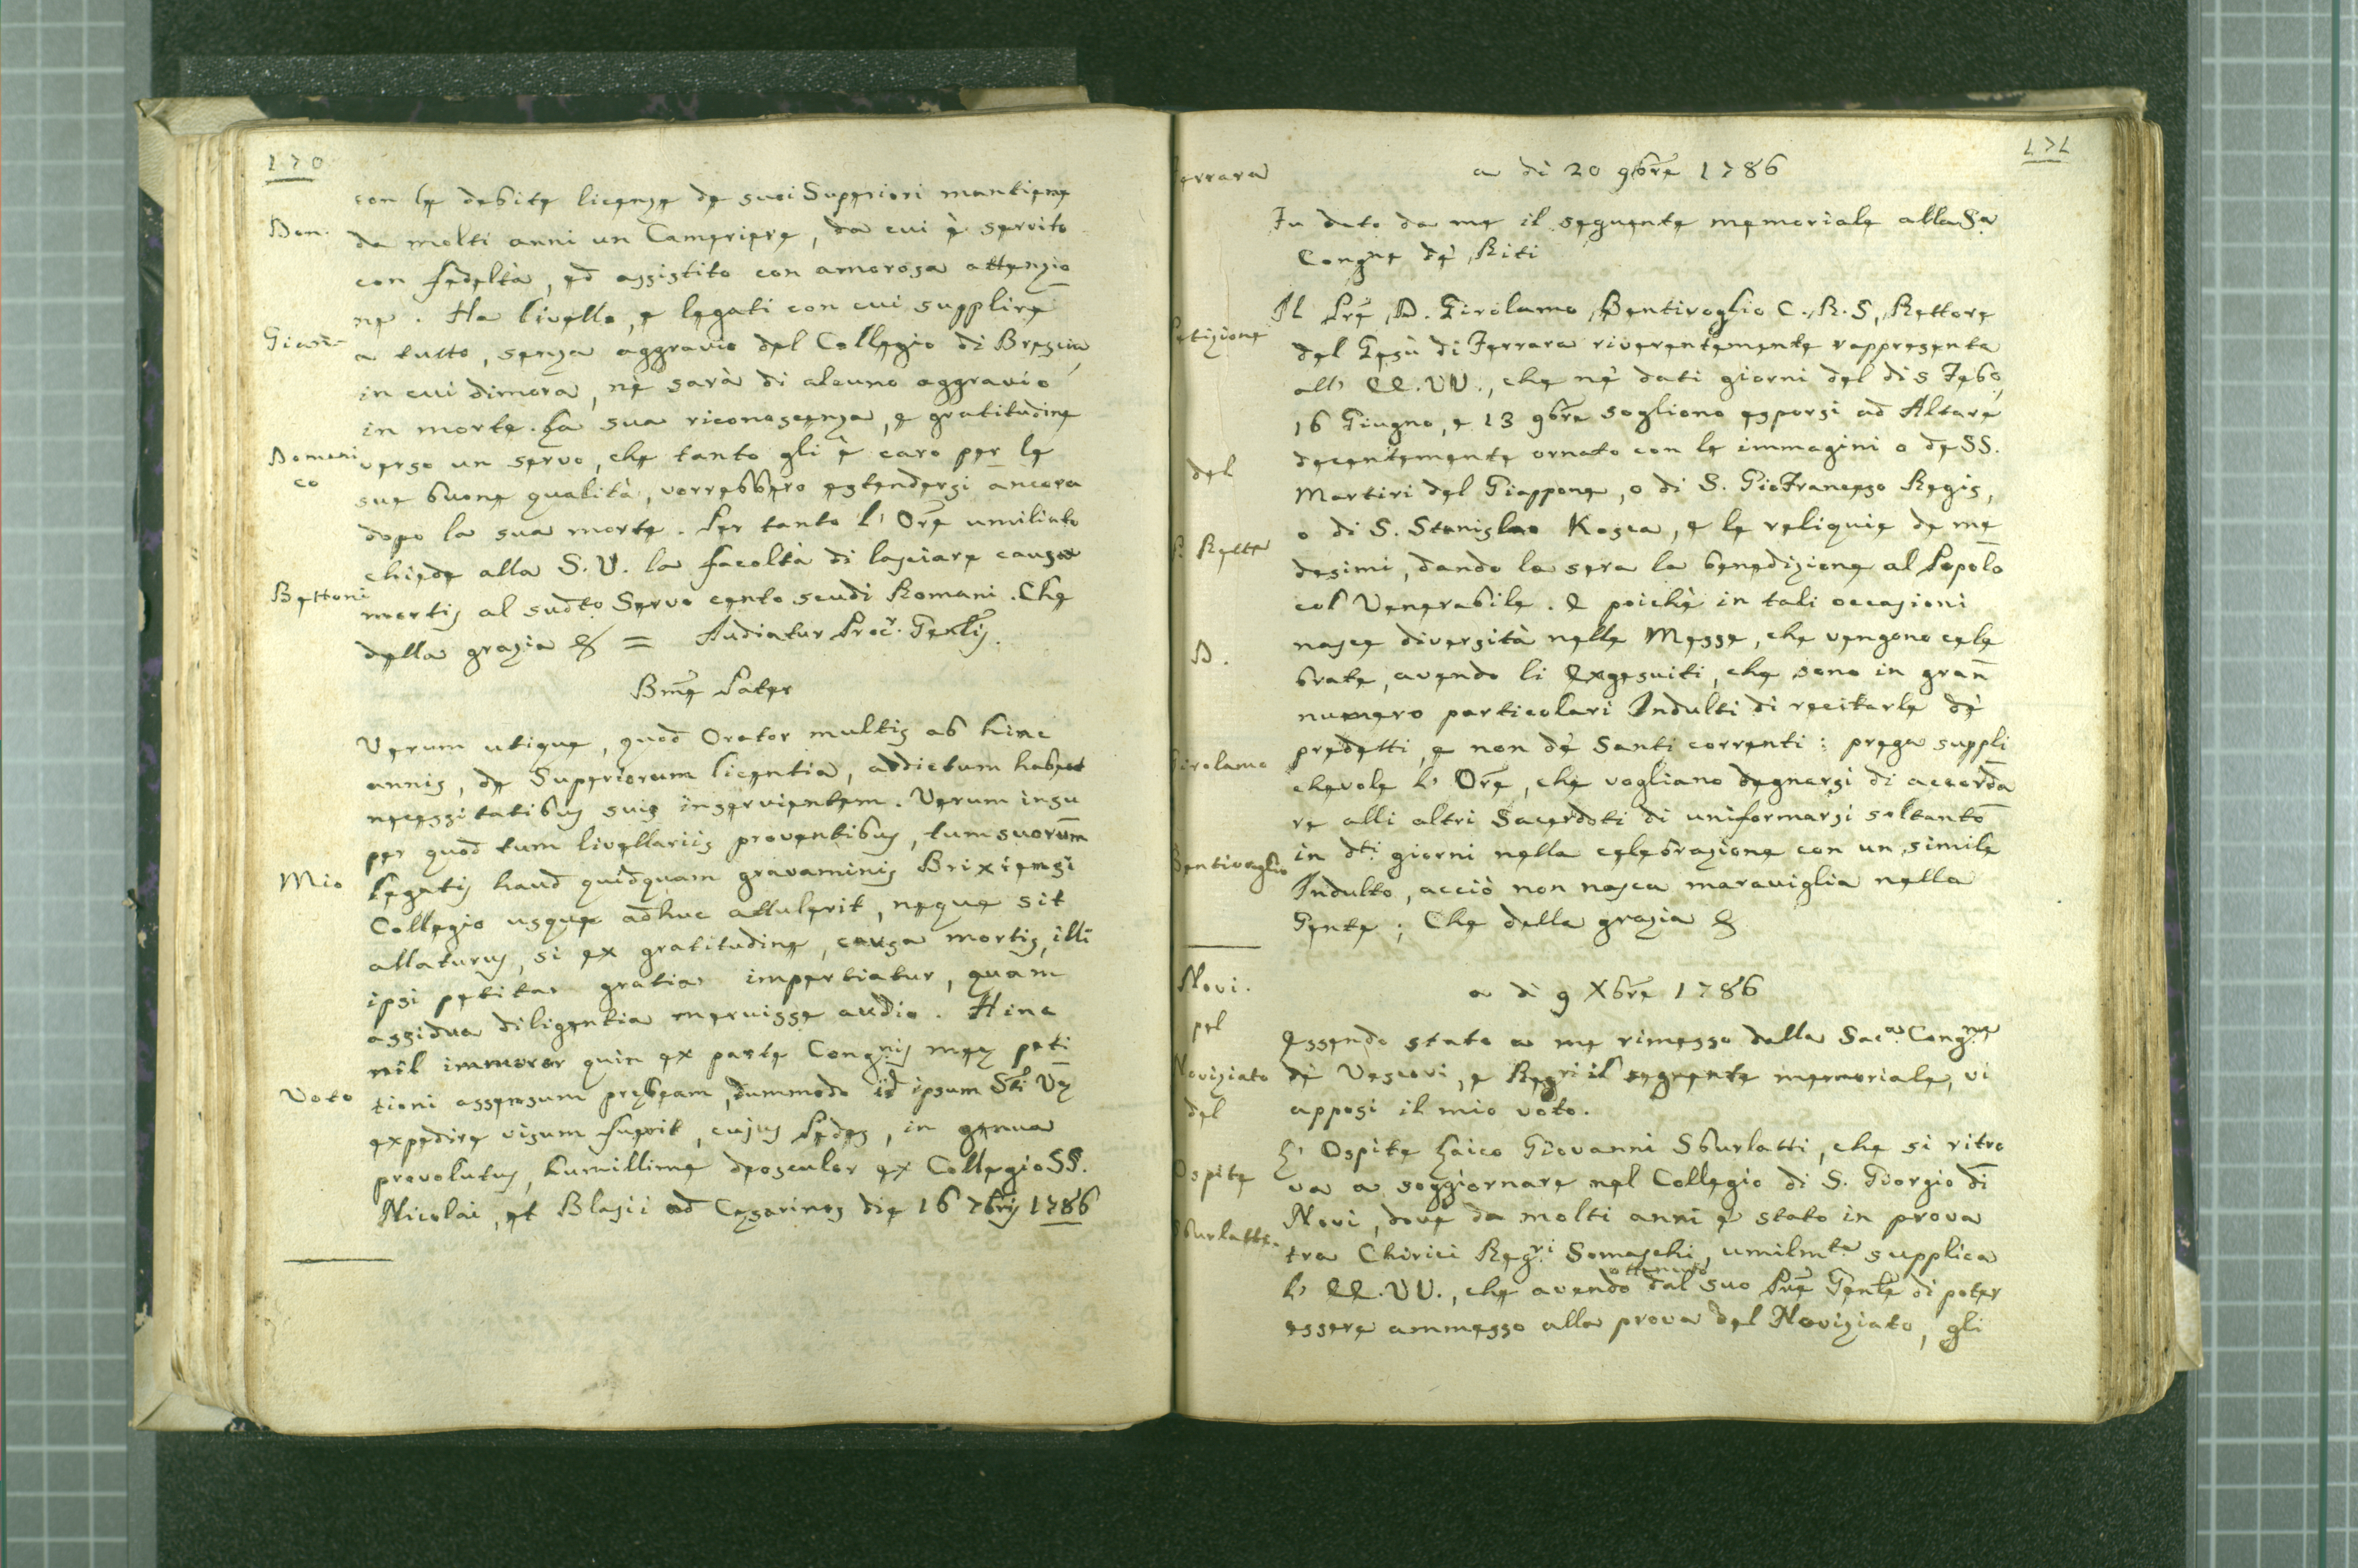 170
con le debite licenze de suoi Superiori mantiene
Don. da molti anni un Cameriere, da cui è servito
con fedeltà, ed assistito con amorosa attenzio
ne. Ha livello, e legati con cui supplire
Gian- a tutto, senza aggravio del Collegio di Brescia,
in cui dimora, nè sarà di alcuno aggravio
in morte. La sua riconoscenza, e gratitudine
Domeni verso un servo, che tanto gli è caro per le
co sue buone qualità, vorrebbero estendersi ancora
dopo la sua morte. Per tanto l' Ore umiliato
chiede alla S. V. la facoltà di lasciare causa
Bettoni mortis al sudto Servo cento scudi Romani. Che
della grazia & = Audiatur Procr. Genlis.
Bme Pater
Verum utique, quod Orator multis ab hinc
annis, de Superiorum licentia, addictum habeat
necessitatibus suis inservientem. Verum insu
per quod tum livellariis proventibus, tum suorum
Mio legatis haud quidquam gravaminis Brixiensi
Collegio usque adhuc attulerit, neque sit
allaturus, si ex gratitudine, causa mortis, illi
ipsi petita gratia impertiatur, quam
assidua diligentia meruisse audio. Hinc
nil immoror quin ex parte Congnis meę peti
Voto tioni assensum prębeam, dummodo id ipsum Sti Vę
expedire visum fuerit, cujus Pedes, in genua
provolutus, humillime deosculor ex Collegio SS.
Nicolai, et Blasii ad Cęsarinos die 16 7bris 1786
171
Ferrara a di 20 9bre 1786
Fu dato da me il seguente memoriale alla Sa
Congne dè Riti
Il Pre D. Girolamo Bentivoglio C. R. S, Rettore
Petizione del Gesù di Ferrara riverentemente rappresenta
all' EE. VV., che nè dati giorni del di 5 Febo,
16 Giugno, e 13 9bre sogliono esporsi ad Altare
decentemente ornato con le immagini o de SS.
del Martiri del Giappone, o di S. Gio Francesco Regis,
o di S. Stanislao Kosca, e le reliquie de me
P. Retta desimi, dando la sera la benedizione al Popolo
col Venerabile. E poichè in tali occasioni
nasce diversità nelle Messe, che vengono cele
D. brate, avendo li Exgesuiti, che sono in gran
numero particolari Indulti di recitarle dè
predetti, e non dè Santi correnti; prega suppli
Girolamo chevole l' Ore, che vogliano degnarsi di accorda
re alli altri Sacerdoti di uniformarsi soltanto
Bentivoglio in dti giorni nella celebrazione con un simile
Indulto, acciò non nasca maraviglia nella
Gente; Che della grazia &
Novi. a di 9 Xbre 1786
pel Essendo stato a me rimesso dalla Saca Congne
Noviziato dè Vescovi, e Regri il seguente memoriale, vi
del apposi il mio voto.
L' Ospite Laico Giovanni Sburlatti, che si ritro
Ospite va a soggiornare nel Collegio di S. Giorgio di
Novi, dove da molti anni è stato in prova
Sburlatti. tra Chirici Regri Somaschi, umilmte supplica
l' EE. VV., che avendo ottenuto dal suo Pre Genle di poter
essere ammesso alla prova del Noviziato, gli